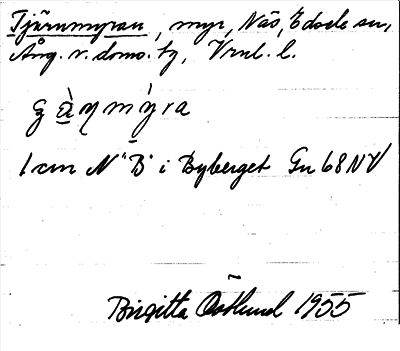 Tjärnmyran, myr, Näs, Edsele sn,
Ång. v. doms. tg, Vrnl. l.
1 cm N "B" i Byberget Gn 68 NV
Birgitta Östlund 1955